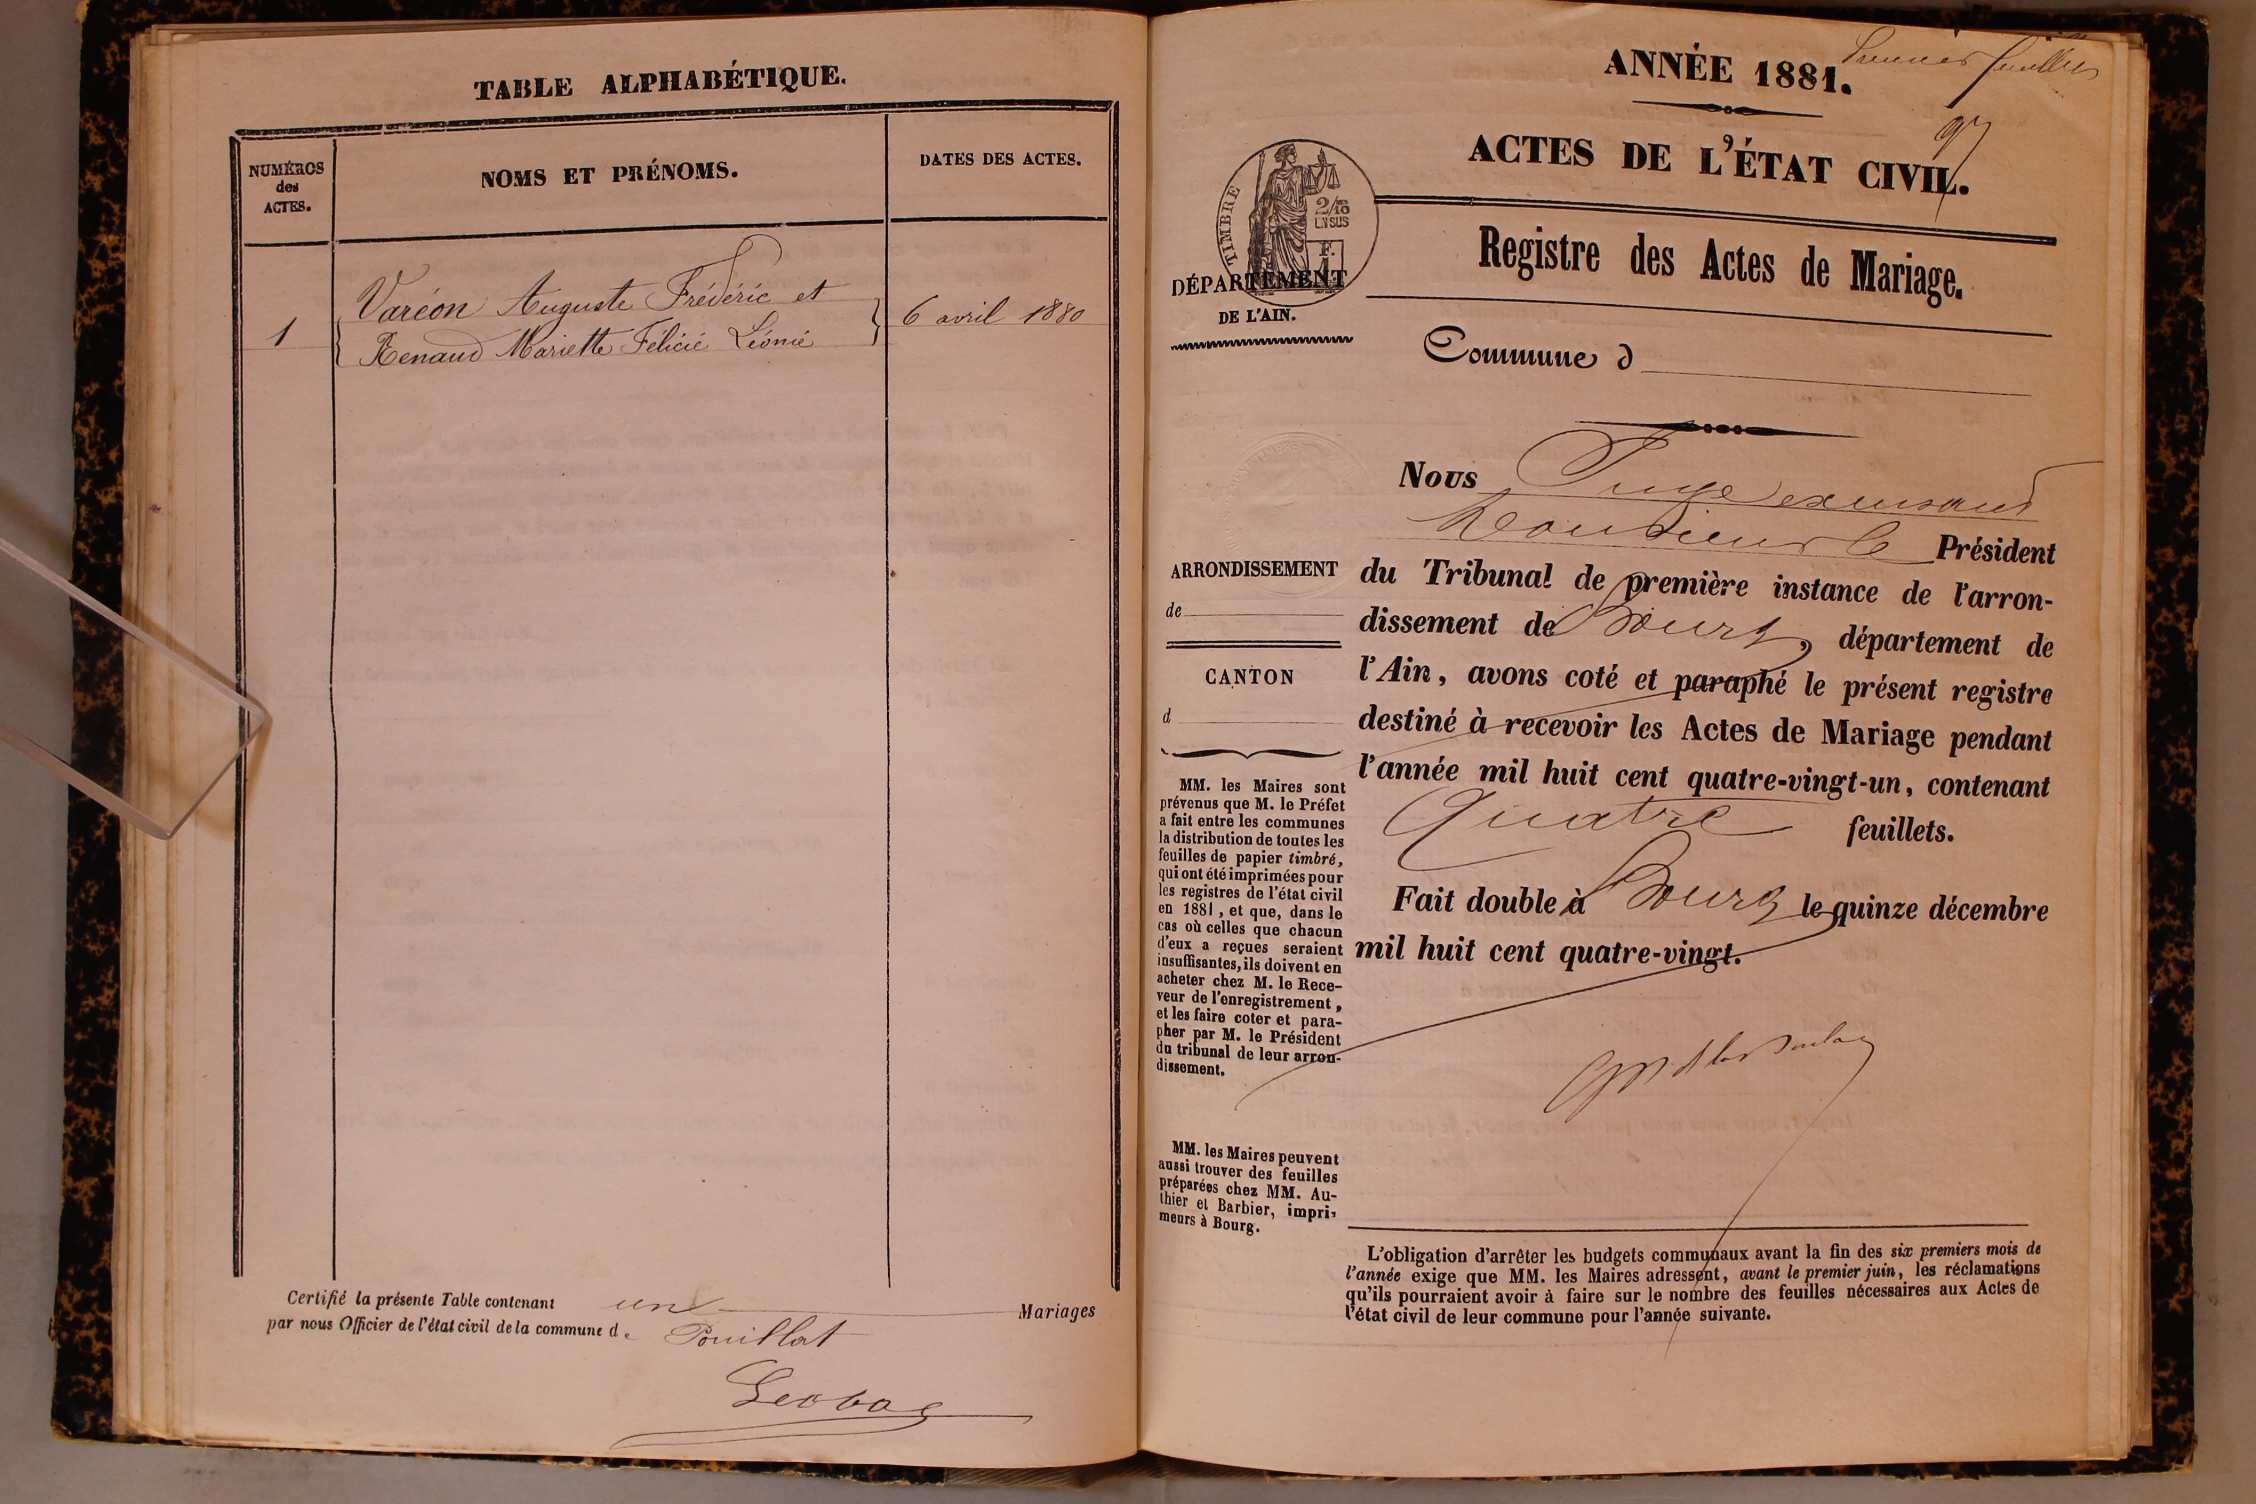 TABLE ALPHABÉTIQUE.
NUMÉROS
des
ACTES.
NOMS ET PRÉNOMS.
DATES DES ACTES.
1
Varéon Auguste Frédéric et
Renaud Mariette Félicie Léonie
6 avril 1880
Certifié la présente Table contenant un Mariages
par nous Officier de l'état civil de la commune de Pouillat
Premier feuillet
ANNÉE 1881.
97
ACTES DE L'ÉTAT CIVIL.
TIMBRE
2/10
EN SUS
1 F.
Registre des Actes de Mariage.
DÉPARTEMENT
DE L'AIN.
Commune d
Nous Juge excusant
Monsieur le Président
du Tribunal de première instance de l'arron-
dissement de Bourg, département de
l'Ain, avons coté et paraphé le présent registre
destiné à recevoir les Actes de Mariage pendant
l'année mil huit cent quatre-vingt-un, contenant
Quatre feuillets.
Fait double à Bourg le quinze décembre
mil huit cent quatre-vingt.
ARRONDISSEMENT
de
CANTON
d
MM. les Maires sont
prévenus que M. le Préfet
a fait entre les communes
la distribution de toutes les
feuilles de papier timbré,
qui ont été imprimées pour
les registres de l'état civil
en 1881, et que, dans le
cas où celles que chacun
d'eux a reçues seraient
insuffisantes, ils doivent en
acheter chez M. le Rece-
veur de l'enregistrement,
et les faire coter et para-
pher par M. le Président
du tribunal de leur arron-
dissement.
MM. les Maires peuvent
aussi trouver des feuilles
préparées chez MM. Au-
thier et Barbier, impri-
meurs à Bourg.
L'obligation d'arrêter les budgets communaux avant la fin des six premiers mois de
l'année exige que MM. les Maires adressent, avant le premier juin, les réclamations
qu'ils pourraient avoir à faire sur le nombre des feuilles nécessaires aux Actes de
l'état civil de leur commune pour l'année suivante.